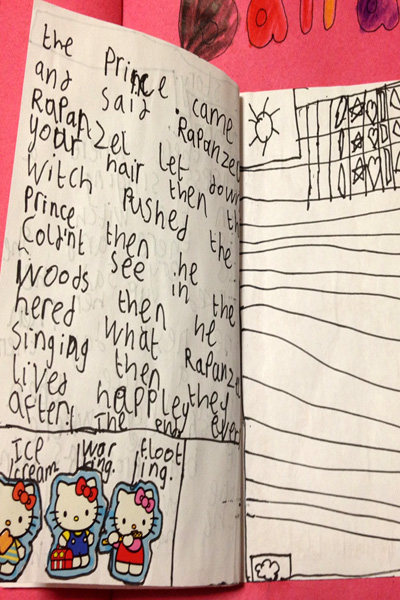 the Prince. came
and said Rapanzel
Rapanzel let down
your hair then th
witch pushed the
Prince then he
Coldn't see in the
woods then he
hered what Rapanzel
singing then they
lived happley ever
after! The end
Ice
cream
war
ing.
floot
ing.